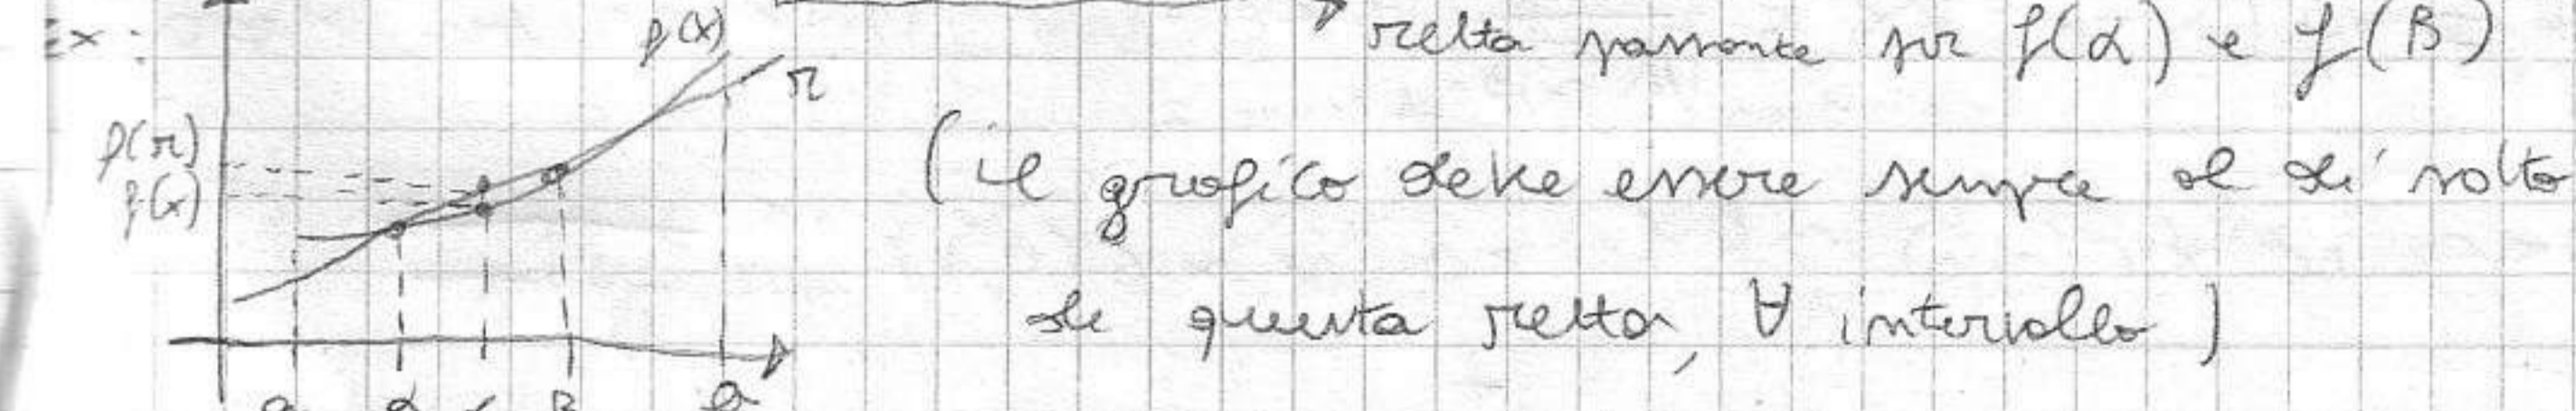 Ex:
f(x)
r
f(r)
f(x)
α x β b
retta passante per f(α) e f(β)
(il grafico deve essere sempre al di sotto
di questa retta, ∀ intervallo)